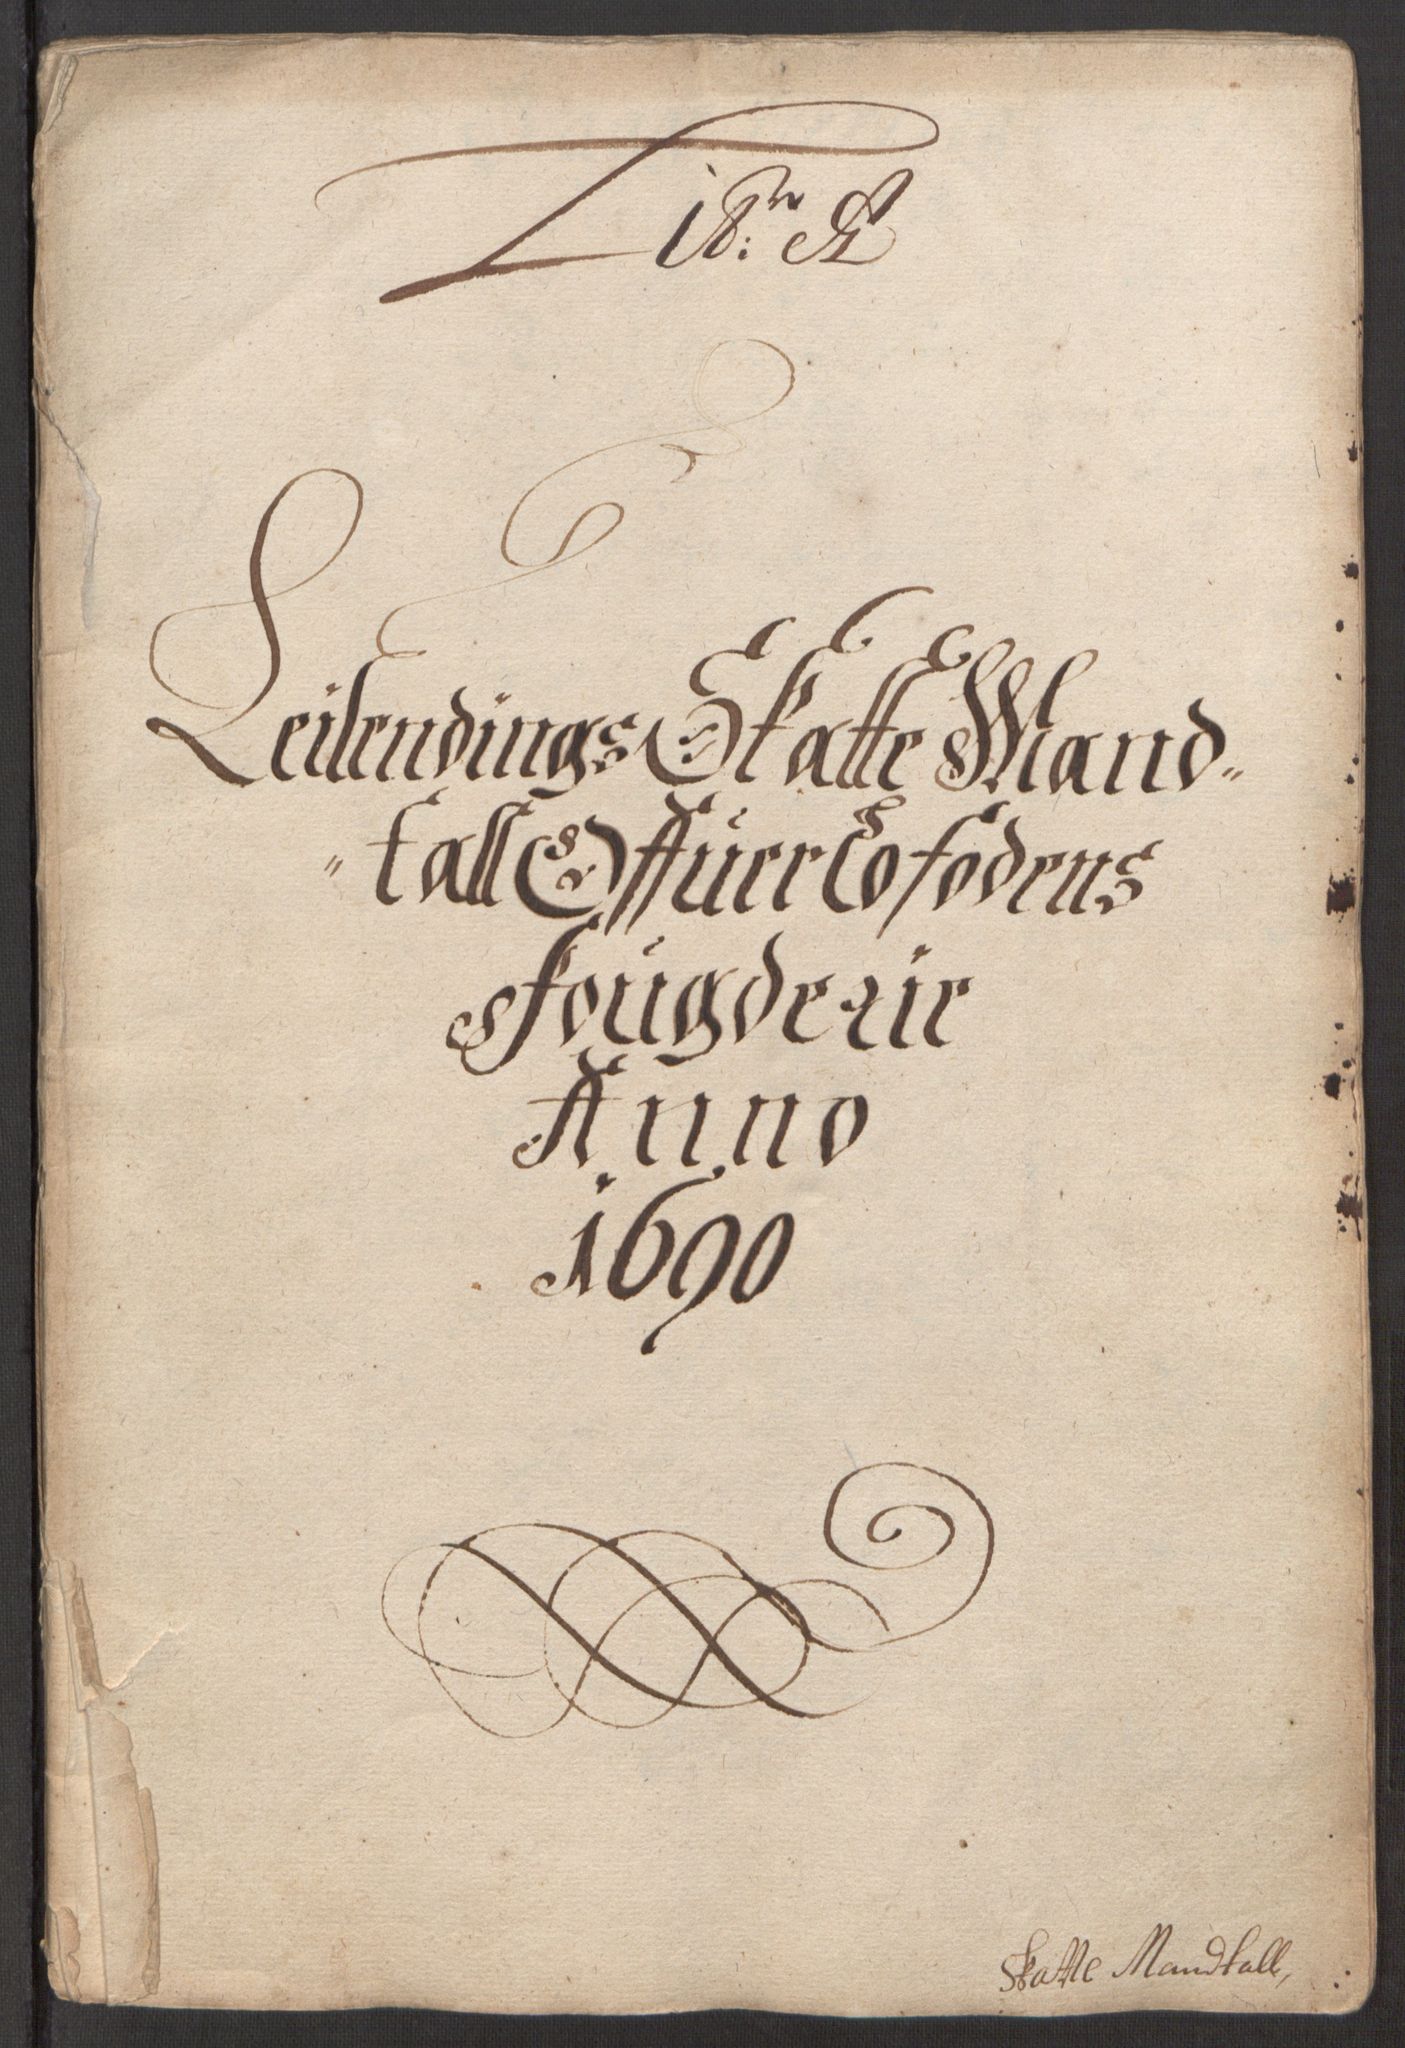 Litr: A
Leilendings Skatte Mand„
„tall Offuer Lofodens
Fougderie
Anno
1690
Skatte Mandtall,